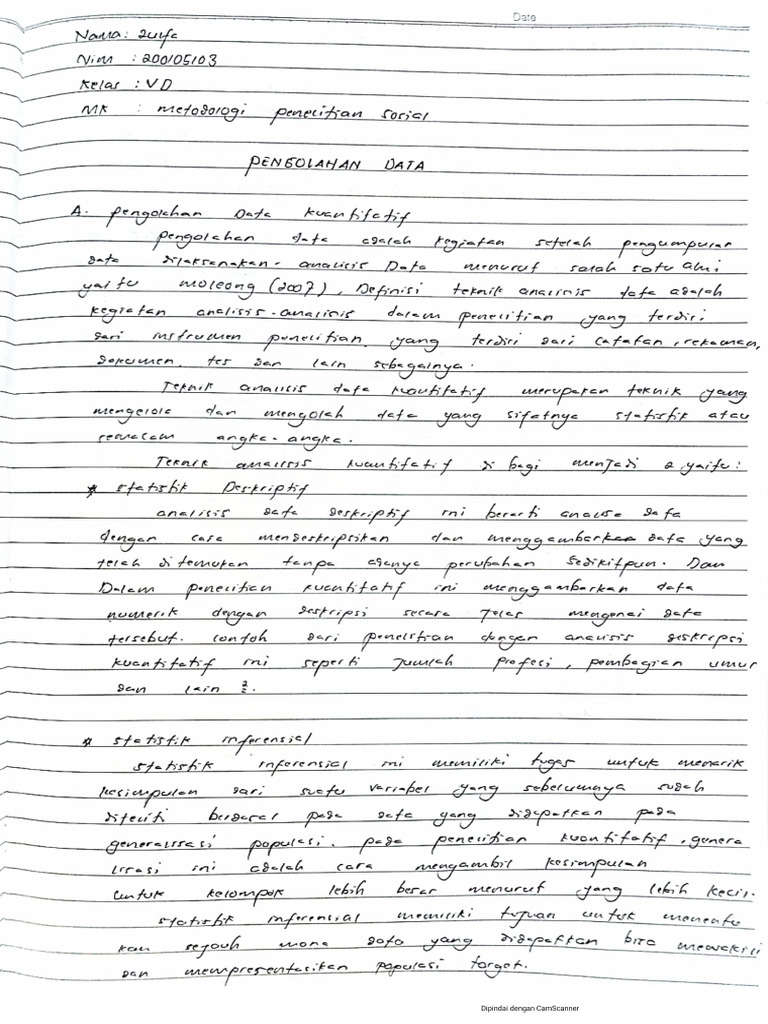 Date
Nama : Zulfa
Nim : 200105103
Kelas : VD
MK : metodologi penelitian sosial
PENGOLAHAN DATA
A. pengolahan Data kuantitatif
pengolahan data adalah kegiatan setelah pengumpulan
data dilaksanakan. analisis Data menurut salah satu ahli
yaitu moleong (2007), Definisi teknik analisis data adalah
kegiatan analisis-analisis dalam penelitian yang terdiri
dari instrumen penelitian yang terdiri dari catatan, rekaman,
dokumen, tes dan lain sebagainya.
Teknik analisis data kuantitatif merupakan teknik yang
mengelola dan mengolah data yang sifatnya statistik atau
semacam angka-angka.
Teknik analisis kuantitatif di bagi menjadi 2 yaitu:
* statistik Deskriptif
analisis data deskriptif ini berarti analisa data
dengan cara mendeskripsikan dan menggambarkan data yang
telah di temukan tanpa adanya perubahan sedikitpun. Dan
Dalam penelitian kuantitatif ini menggambarkan data
numerik dengan deskripsi secara jelas mengenai data
tersebut. contoh dari penelitian dengan analisis deskripsi
kuantitatif ini seperti jumlah profesi, pembagian umur
dan lain 2.
* statistik inferensial
statistik inferensial ini memiliki tugas untuk menarik
kesimpulan dari suatu variabel yang sebelumnya sudah
diteliti berdasar pada data yang didapatkan pada
generalisasi populasi. pada penelitian kuantitatif, genera
lisasi ini adalah cara mengambil kesimpulan
untuk kelompok lebih besar menurut yang lebih kecil.
statistik inferensial memiliki tujuan untuk menentu
kan sejauh mana data yang didapatkan bisa mewakili
dan mempresentasikan populasi target.
Dipindai dengan CamScanner